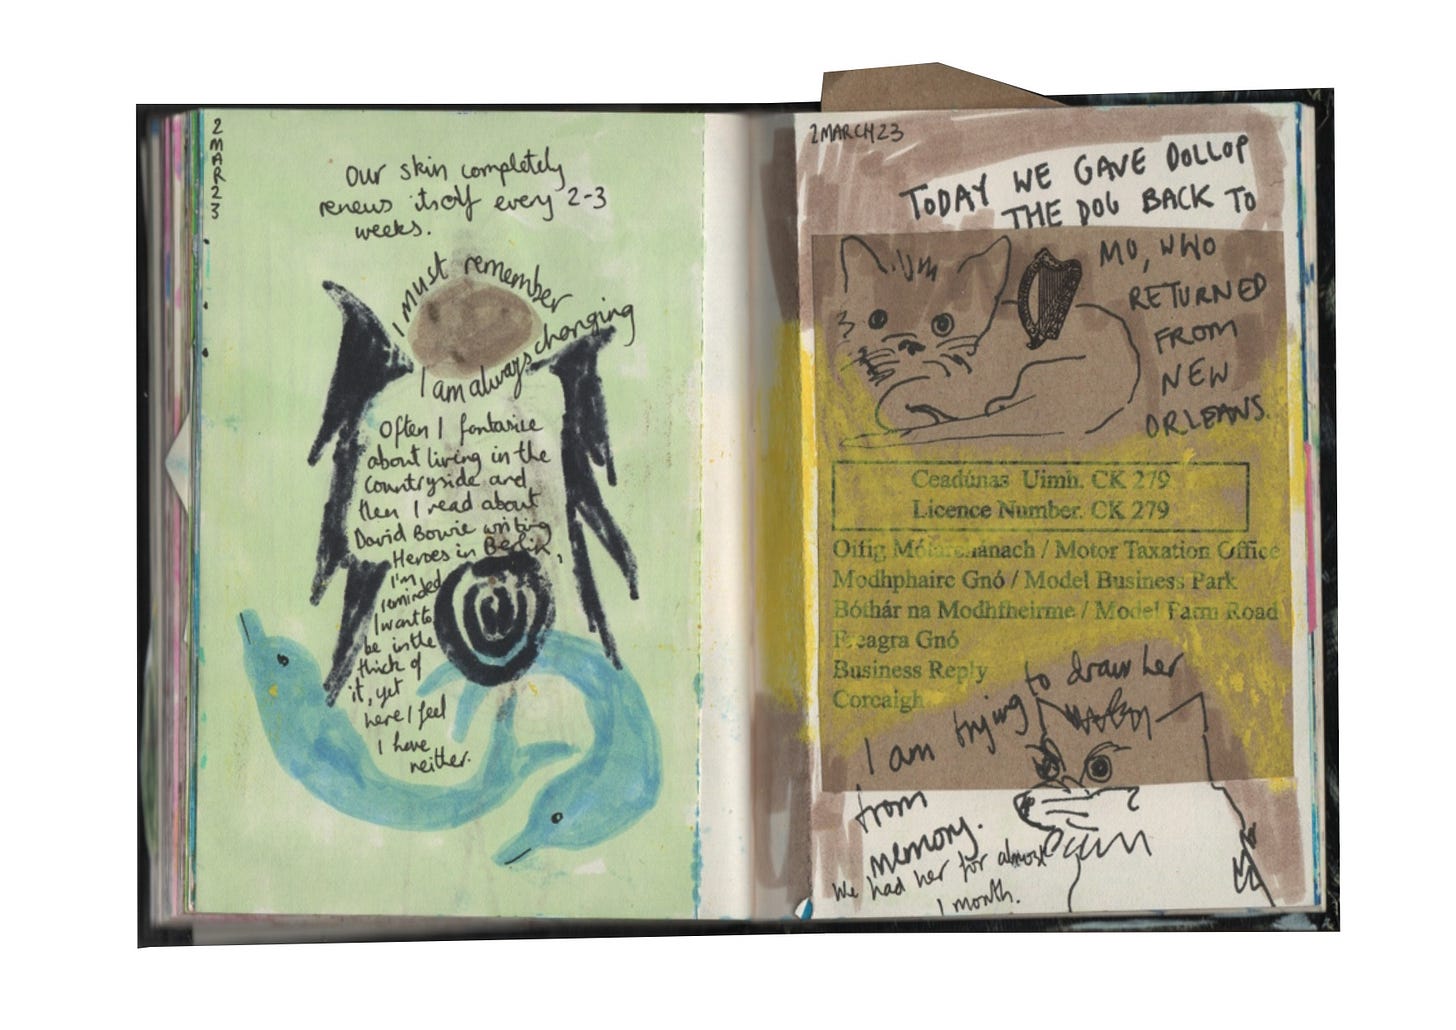 2
MAR
23
Our skin completely
renews itself every 2-3
weeks.
I must remember
I am always changing
Often I fantasise
about living in the
countryside and
then I read about
David Bowie writing
Heroes in Berlin,
I'm
reminded
I want to
be in the
thick of
it, yet
here I feel
I have
neither.
2 MARCH 23
TODAY WE GAVE DOLLOP
THE DOG BACK TO
MO, WHO
RETURNED
FROM
NEW
ORLEANS.
Ceadúnas Uimh. CK 279
Licence Number. CK 279
Oifig Mótarchánach / Motor Taxation Office
Modhphairc Gnó / Model Business Park
Bóthár na Modhfheirme / Model Farm Road
Freagra Gnó
Business Reply
Corcaigh
I am trying to draw her
from
memory.
We had her for almost
1 month.